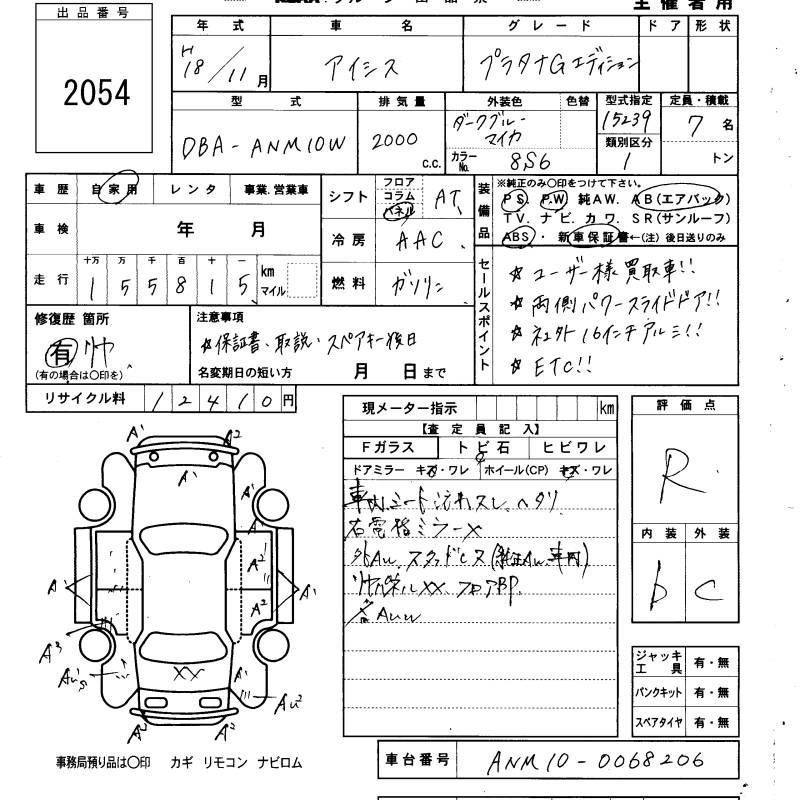 主催者用
出品番号
2054
年式 車名 グレード ドア 形状
H18/11月 アイシス プラタナGエディション
型式 排気量 外装色 色替 型式指定 定員・積載
DBA-ANM10W 2000 c.c. ダークブルーマイカ 15239 7名
カラーNo. 8S6 類別区分 1 トン
車歴 自家用 レンタ 事業.営業車
車検 年 月
走行 十万 万 千 百 十 一
1 5 5 8 1 5 km マイル
シフト フロア コラム パネル AT
冷房 AAC
燃料 ガソリン
装備品
※純正のみ〇印をつけて下さい。
PS. P.W 純AW. AB(エアバック)
TV. ナビ. カワ. SR(サンルーフ)
ABS・ 新車保証書←(注) 後日送りのみ
セールスポイント
☆ ユーザー様買取車!!
☆ 両側パワースライドドア!!
☆ 社外16インチアルミ!!
☆ ETC!!
修復歴 箇所
有 リヤ
(有の場合は〇印を)
注意事項
☆保証書、取説、スペアキー後日
名変期日の短い方 月 日まで
リサイクル料 12410円
現メーター指示 km
【査定員記入】
Fガラス トビ石 ヒビワレ
ドアミラー キズ・ワレ ホイール(CP) キズ・ワレ
車内シート汚れスレ、ヘタリ
右電格ミラーX
外AW スタッドレス(純正AW車内)
リヤパネルXX フロアBP
評価点
R
内装 外装
b C
A' A2
A'
A'
A'
A2
A2
A' A'
A3
XX A'
AU2
A2 A2
ジャッキ工具 有・無
パンクキット 有・無
スペアタイヤ 有・無
事務局預り品は〇印 カギ リモコン ナビロム
車台番号 ANM10-0068206